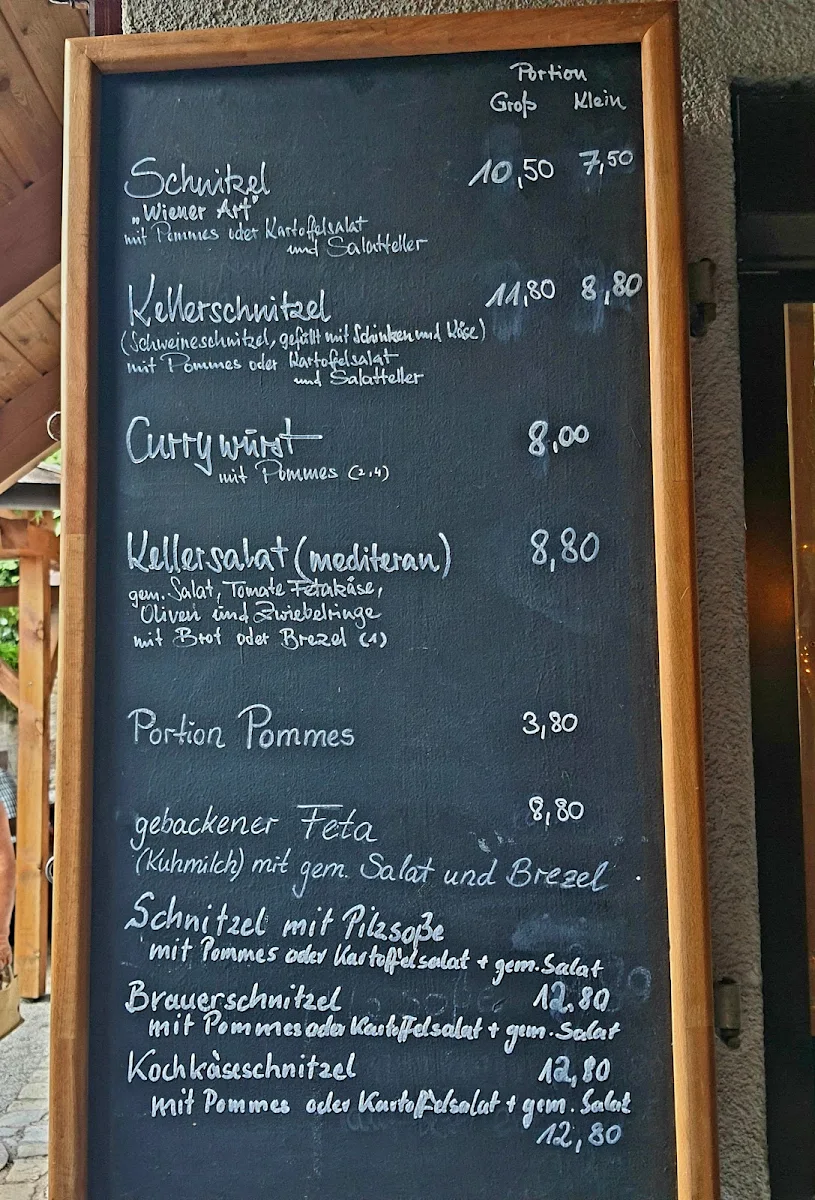 Portion
Groß Klein
Schnitzel 10,50 7,50
„Wiener Art"
mit Pommes oder Kartoffelsalat
und Salatteller
Kellerschnitzel 11,80 8,80
(Schweineschnitzel, gefüllt mit Schinken und Käse)
mit Pommes oder Kartoffelsalat
und Salatteller
Currywurst 8,00
mit Pommes (2,4)
Kellersalat (mediteran) 8,80
gem. Salat, Tomate Fetakäse,
Oliven und Zwiebelringe
mit Brot oder Brezel (1)
Portion Pommes 3,80
gebackener Feta 8,80
(Kuhmilch) mit gem. Salat und Brezel
Schnitzel mit Pilzsoße
mit Pommes oder Kartoffelsalat + gem. Salat
Brauerschnitzel 12.80
mit Pommes oder Kartoffelsalat + gem. Salat
Kochkäseschnitzel 12,80
mit Pommes oder Kartoffelsalat + gem. Salat
12,80